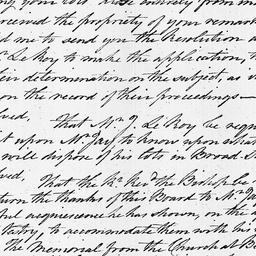 ing your lots arose entirely from
received the propriety of your remark
ed me to send you the Resolution a
Mr. Le Roy to make the application,
their determination on the subject, as
on the record of their proceedings—
lved,
That Mr. J. Le Roy be requ
t upon Mr. Jay to know upon what
will dispose of his lots in Broad S
ved,
That the Rt. Revd. the Bishop be
turn the thanks of this Board to Mr. Ja
ful acquiescence he has shown, on the
Vestry, to accommodate them with his
The Memorial from the Church at B